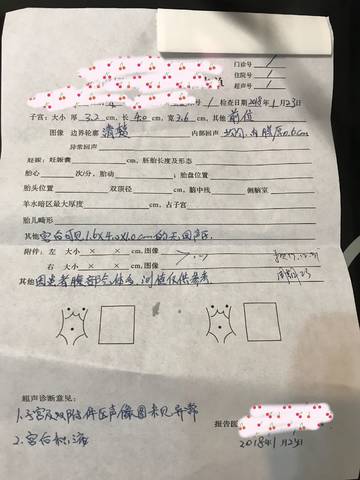 门诊号 /
住院号 /
超声号 /
检查日期2018年1月23日
子宫：大小 厚3.2cm，长4.0cm，宽3.6cm，其他 前位
图像 边界轮廓 清楚 内部回声 均匀，内膜厚0.6cm
异常回声
妊娠：妊娠囊 cm，胚胎长度及形态
胎心 次/分，胎动 ；胎盘位置
胎头位置 双顶径 cm，脑中线 侧脑室
羊水暗区最大厚度 cm，占子宫
胎儿畸形
其他 宫后可见1.6×4.0×1.0cm的无回声区
附件：左 大小 × × cm，图像
右 大小 × × cm，图像
其他 因患者腹部气体多，测值仅供参考
超声诊断意见：
1.子宫及双附件区声像图未见异常
2.宫后积液
报告医
2018年1月23日